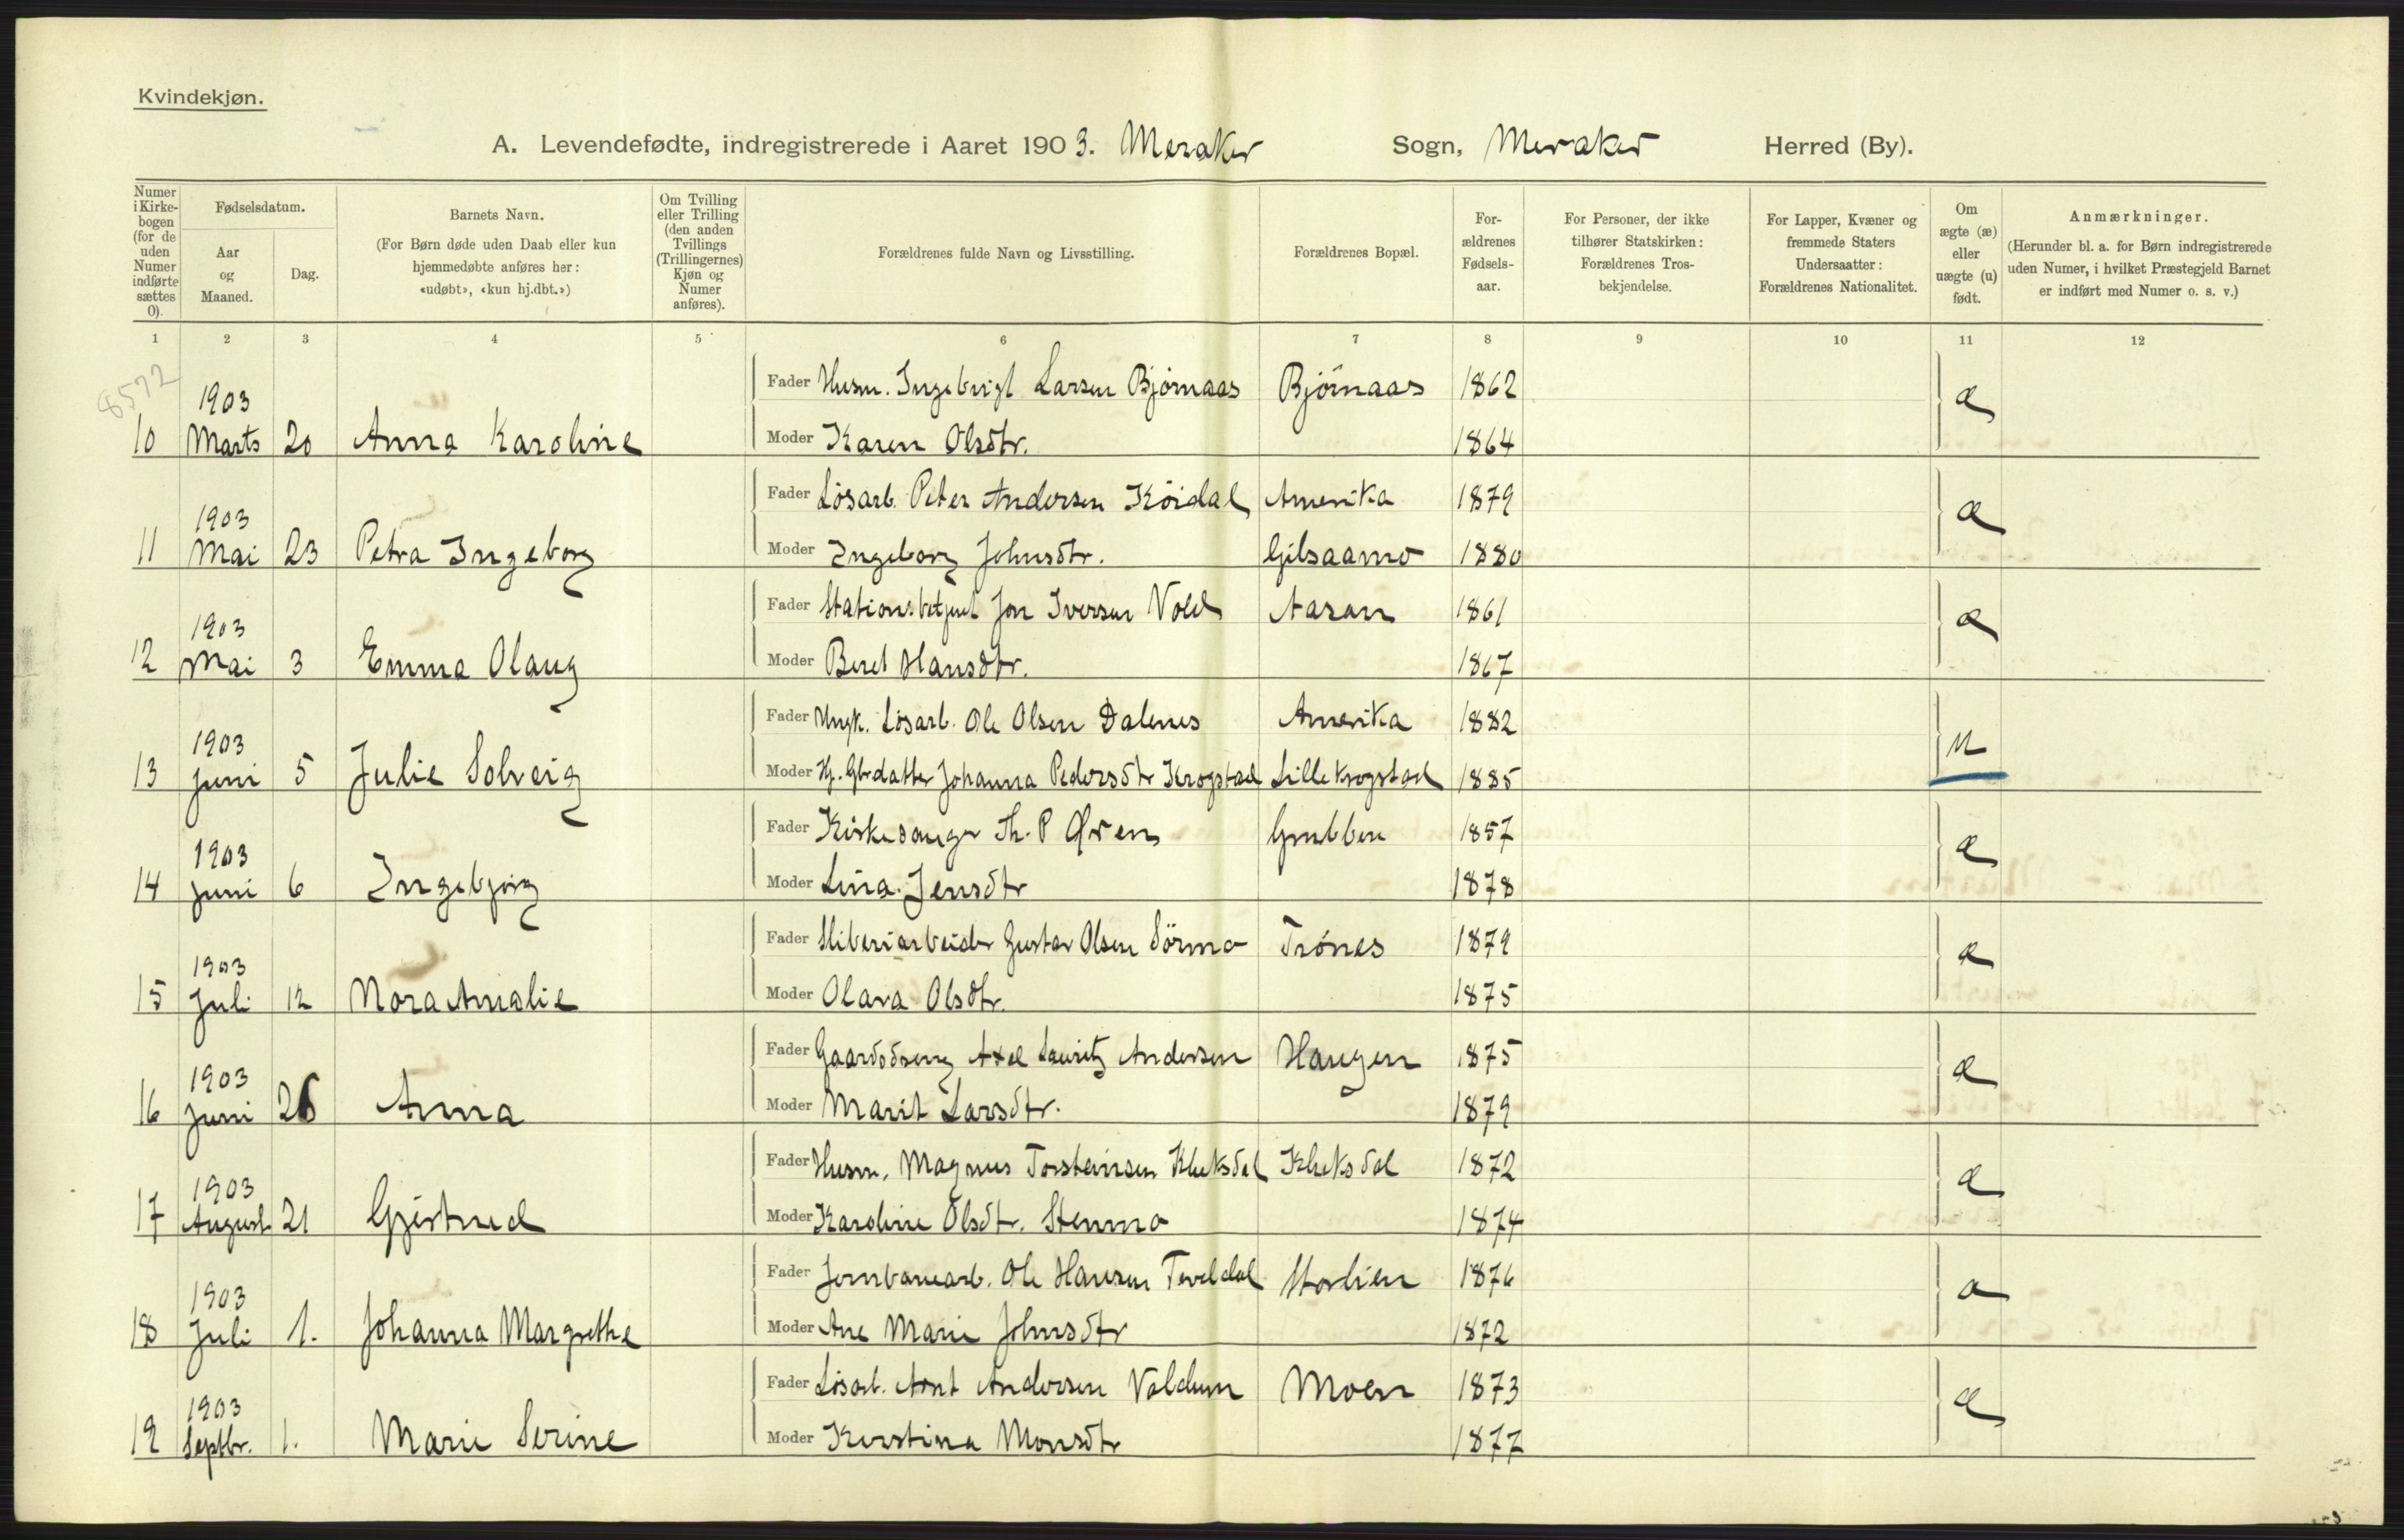 Kvindekjøn.
A. Levendefødte, indregistrerede i Aaret 1903. Meraker Sogn, Meraker Herred (By).
Numer i Kirkebogen (for de uden Numer indførte sættes 0).
Fødselsdatum.
Aar og Maaned.
Dag.
Barnets Navn.
(For Børn døde uden Daab eller kun hjemmedøbte anføres her: «udøbt», «kun hj.dbt.»)
Om Tvilling eller Trilling (den anden Tvillings (Trillingernes) Kjøn og Numer anføres).
Forældrenes fulde Navn og Livsstilling.
Forældrenes Bopæl.
For-ældrenes Fødsels-aar.
For Personer, der ikke tilhører Statskirken: Forældrenes Tros-bekjendelse.
For Lapper, Kvæner og fremmede Staters Undersaatter: Forældrenes Nationalitet.
Om ægte (æ) eller uægte (u) født.
Anmærkninger.
(Herunder bl. a. for Børn indregistrerede uden Numer, i hvilket Præstegjeld Barnet er indført med Numer o. s. v.)
1 2 3 4 5 6 7 8 9 10 11 12
8572
Fader Husm. Ingebrigt Larsen Bjørnaas Bjørnaas 1862 æ
10 1903 Marts 20 Anna Karoline Moder Karen Olsdtr. 1864
Fader Løsarb. Peter Andersen Køidal Amerika 1879 æ
11 1903 Mai 23 Petra Ingeborg Moder Ingeborg Johnsdtr. Gilsaamo 1880
Fader Stationsbetjent Jon Iversen Vold Aasan 1861 æ
12 1903 Mai 3 Emma Olaug Moder Beret Hansdtr. 1867
Fader Ungk. Løsarb. Ole Olsen Dalenes Amerika 1882 u
13 1903 Juni 5 Julie Solveig Moder Hj. Gbrdatter Johanna Pedersdtr Krogstad Lille Krogstad 1885
Fader Kirkesanger Th. P Øren Grubben 1857 æ
14 1903 Juni 6 Ingebjørg Moder Lina Jensdtr 1878
Fader Sliberiarbeider Gustav Olsen Sørmo Trønes 1879 æ
15 1903 Juli 12 Nora Amalie Moder Olava Olsdtr. 1875
Fader Axel Lauritz Andersen Haugen 1875 æ
16 1903 Juni 26 Anna Moder Marit Larsdtr. 1879
Fader Husm. Magnus Torsteinsen Kluksdal Kluksdal 1872 æ
17 1903 August 21 Gjertrud Moder Karoline Olsdtr. Stenmo 1874
Fader Jernbanearb. Ole Hansen Teveldal Storlien 1876 æ
18 1903 Juli 1. Johanna Margrethe Moder Ane Marie Johnsdtr 1872
Fader Løsarb. Arnt Andersen Voldum Moen 1873 æ
19 1903 Septbr. 1. Marie Serine Moder Kerstina Monsdtr 1877